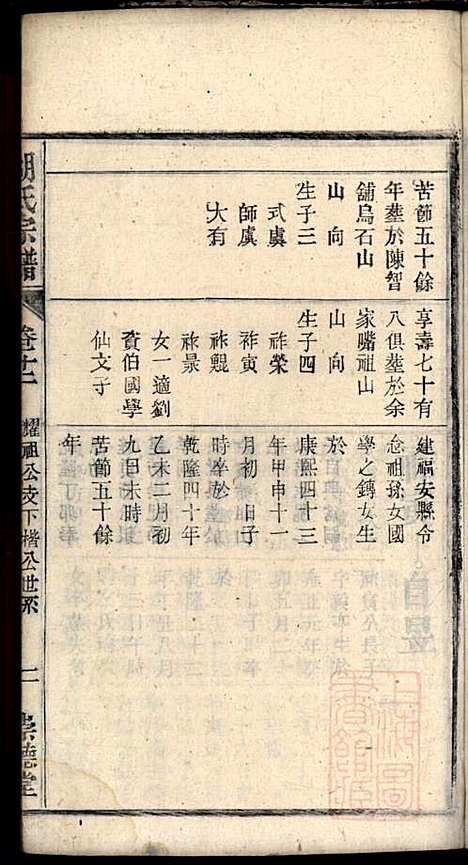 苦節五十餘
年塟於陳智
舖烏石山
山向
生子三
式虞
師虞
大有
享壽七十有
八俱塟於余
家嘴祖山
山向
生子四
祚榮
祚寅
祚鯤
祚景
女一適劉
賓伯國學
仙文子
建福安縣令
念祖孫女國
學之鏄女生
於
康熙四十三
年甲申十一
月初一日子
時卒於
乾隆四十年
乙未二月初
九日未時
苦節五十餘
年
胡氏宗譜
卷十二
耀祖公支下楷公世系
二
崇德堂
上海圖
書館藏